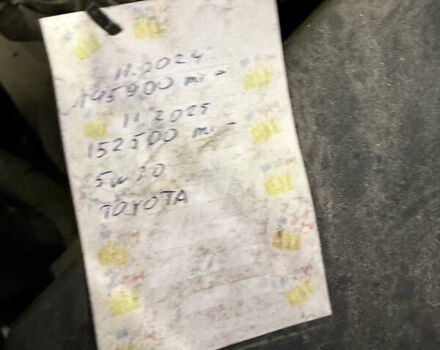 11.2024
145900 mi
11.2025
152500 mi
5w20
TOYOTA